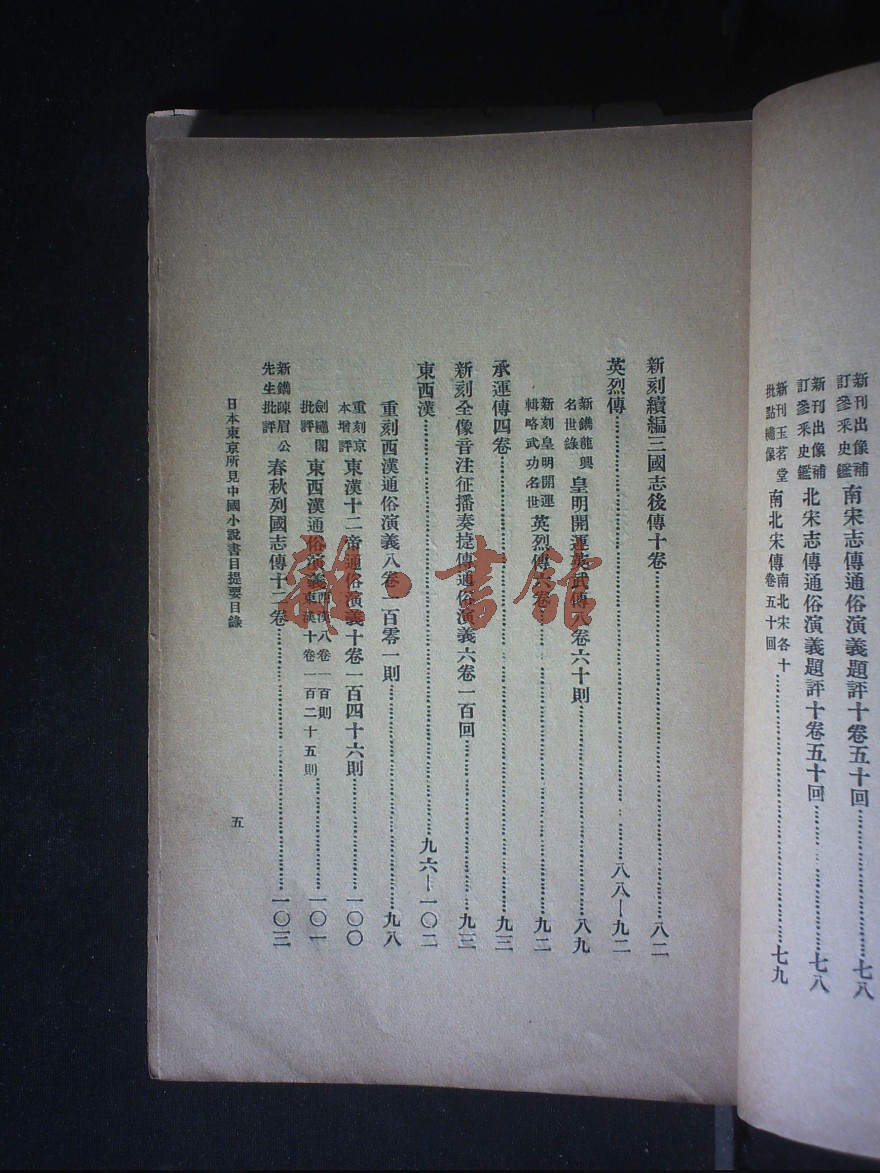 新刊出像補訂參采史鑑南宋志傳通俗演義題評十卷五十回……七八
新刊出像補訂參采史鑑北宋志傳通俗演義題評十卷五十回……七八
新刊玉茗堂批點繡像南北宋傳南北宋各十卷五十回……七九
新刻續編三國志後傳十卷……八二
英烈傳……八八—九二
新鐫龍興名世錄皇明開運英武傳八卷六十則……八九
新刻皇明開運輯略武功名世英烈傳六卷……九二
承運傳四卷……九三
新刻全像音注征播奏捷傳通俗演義六卷一百回……九三
東西漢……九六—一〇二
重刻西漢通俗演義八卷一百零一則……九八
重刻京本增評東漢十二帝通俗演義十卷一百四十六則……一〇〇
劍嘯閣批評東西漢通俗演義西漢八卷一百則東漢十卷一百二十五則……一〇一
新鐫陳眉公先生批評春秋列國志傳十二卷……一〇三
日本東京所見中國小說書目提要目錄
五
雜·書館